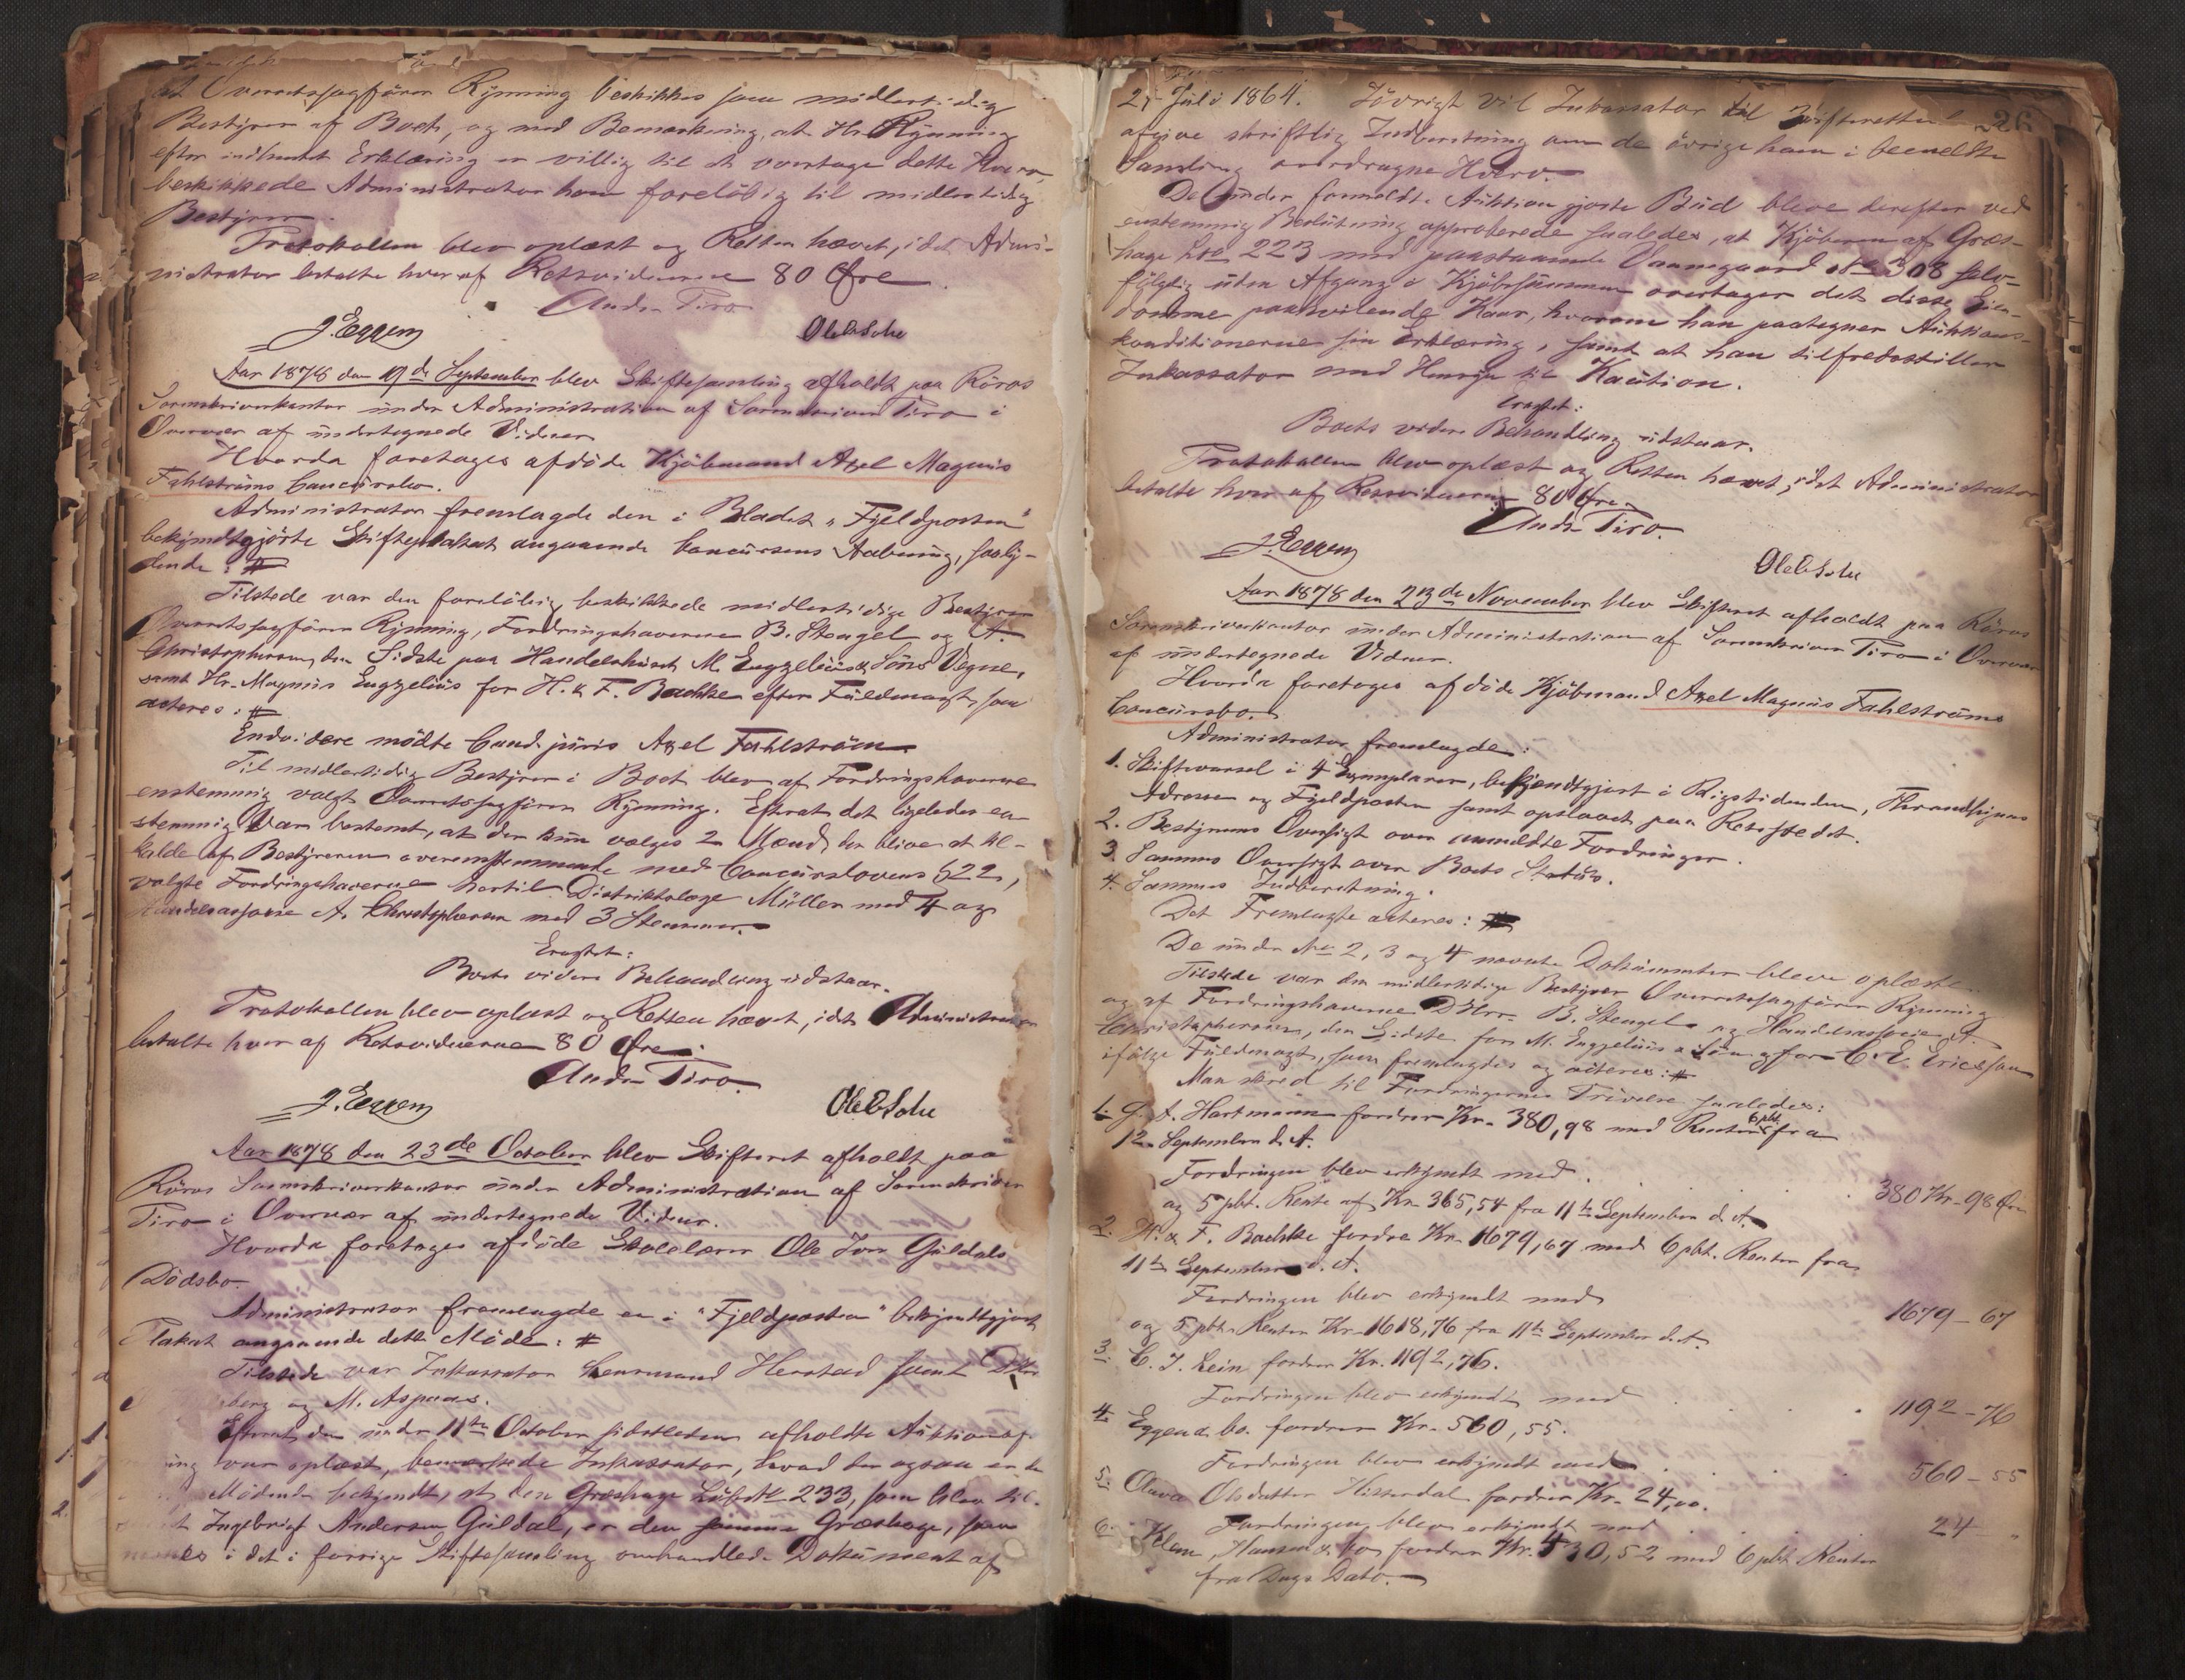 at Overretssagfører Rynning beskikkes som midlertidig
Bestyrer af Boet, og med Bemærkning, at Hr. Rynning
efter indhentet Erklæring er villig til at overtage dette Hverv,
beskikkede Administrator ham foreløbig til midlertidig
Bestyrer.
Protokollen blev oplæst og Retten hævet, idet Admi-
nistrator betalte hver af Retsvidnerne 80 Øre.
Andr. Tiro
J. Eggen
Ole
Aar 1878 den 19de September blev Skiftesamling afholdt paa Röros
Sorenskriverkontor under Administration af Sorenskriver Tiro i
Overvær af undertegnede Vidner.
Hvorda foretoges afdöde Kjöbmand Axel Magnus
Fahlströms Concursbo.
Administrator fremlagde den i Bladet "Fjeldposten"
bekjendtgjörte Skifteplakat angaaende Concursens Aabning, saaly-
dende: #
Tilstede var den foreløbig beskikkede midlertidige Bestyrer
Overretssagförer Rynning, Fordringshaverne B. Stengel og A.
Christophersen, den Sidste paa Handelshuset M. Engzelius & Söns Vegne,
samt Hr. Magnus Engzelius for H. & F. Bachke efter Fuldmagt, som
acteres: #
Endvidere mödte Cand. juris Axel Fahlström
Til midlertidig Bestyrer i Boet blev af Fordringshaverne
enstemmig valgt Overretssagförer Rynning. Efterat det ligeledes en-
stemmig var bestemt, at der kun vælges 2 Mænd, der blive at til-
kalde af Bestyreren overensstemmende med Concurslovens § 22,
valgte Fordringshaverne hertil Distriktslæge Müller med 4 og
Handelsassosie A. Christophersen med 3 Stemmer.
Eragtet:
Boets videre Behandling udstaar.
Protokollen blev oplæst og Retten hævet, idet Administrator
betalte hver af Retsvidnerne 80 Øre.
Andr. Tiro.
J. Eggen
Ole
Aar 1878 den 23de October blev Skifteret afholdt paa
Röros Sorenskriverkontor under Administration af Sorenskriver
Tiro i Overvær af undertegnede Vidner.
Hvorda foretoges afdöde Skolelærer Ole Guldals
Dödsbo.
Administrator fremlagde en i "Fjeldposten" bekjendtgjort
Plakat angaaende dette Möde: #
Tilstede var Inkassator Lensmand Herstad samt
berg og M. Aspaas.
Efterat den under 11te October sidstleden afholdte
var oplæst, bemærkede Inkassator, hvad der ogsaa er de
Mödende bekjendt, at den Græshage 233, som blev til-
Ingebrigt Andersen Guldal, er den samme Græshage, som
i det i forrige Skiftesamling omhandlede Dokument af
226
Juli 1864. Iövrigt vil Inkassator til Skifteretten
afgive skriftlig Indberetning om de övrige ham i bemeldte
Samling overdragne Hverv.
De under formeldte Auktion gjorte Bud bleve derefter ved
enstemmig Beslutning approberede saaledes, at Kjöberen af Græs-
hage No 223 med paastaaende Vaanegaard No 308 selv-
fölgelig uden Afgang i Kjöbesummen overtager det disse Eien-
domme paahvilende Kaar, hvorom han paategner Auktions-
konditionerne sin Erklæring, samt at han tilfredsstiller
Inkassator med Hensyn til Kaution.
Eragtet:
Boets videre Behandling udstaar.
Protokollen blev oplæst og Retten hævet, idet Administrator
betalte hver af Retsvidnerne 80 Øre.
Andr. Tiro.
J. Eggen
Ole
Aar 1878 den 23de November blev Skifteret afholdt paa Röros
Sorenskriverkontor under Administration af Sorenskriver Tiro i Overvær
af undertegnede Vidner.
Hvorda foretoges afdöde Kjöbmand Axel Magnus Fahlströms
Concursbo.
Administrator fremlagde:
1. Skiftevarsel i 4 Exemplarer, bekjendtgjort i Rigstidenden, Throndhjems
Adresse og Fjeldposten samt opslaaet paa Retsstedet.
2. Bestyrerens Oversigt over anmeldte Fordringer.
3. Sammes Oversigt over Boets Status.
4. Sammes Indberetning.
Det Fremlagte acteres: #
De under No 2, 3 og 4 nævnte Dokumenter bleve oplæste.
Tilstede var den midlertidige Bestyrer Overretssagförer Rynning
og af Fordringshaverne DHrr. B. Stengel og Handelsassosie A.
Christophersen, den Sidste for M. Engzelius & Sön og for C. E. Ericsson
ifölge Fuldmagt, som fremlagdes og acteres: #
Man skred til Fordringernes Prövelse saaledes:
1. G. A. Hartmann fordrer Kr. 380,98 med Renter 6 pCt. fra
12 September d. A.
Fordringen blev erkjendt med . . . . 380 Kr. 98 Øre
og 5 pCt. Rente af Kr. 365,54 fra 11te September d. A.
2. H. & F. Bachke fordrer Kr. 1679,67 med 6 pCt. Renter fra
11te September d. A.
Fordringen blev erkjendt med 1679 - 67
og 5 pCt. Renter Kr. 1618,76 fra 11te September d. A.
3. C. J. Lein fordrer Kr. 1192,76.
Fordringen blev erkjendt med . . . . 1192 - 76
4. Eggen & Co. fordrer Kr. 560,55.
Fordringen blev erkjendt med . . . . 560 - 55
5. Olsdatter Hitterdal fordrer Kr. 24,00.
Fordringen blev erkjendt med . . . . 24 - "
6. Klem, Hansen & Co. fordrer Kr. 430,52 med 6 pCt. Renter
fra Dags Dato.